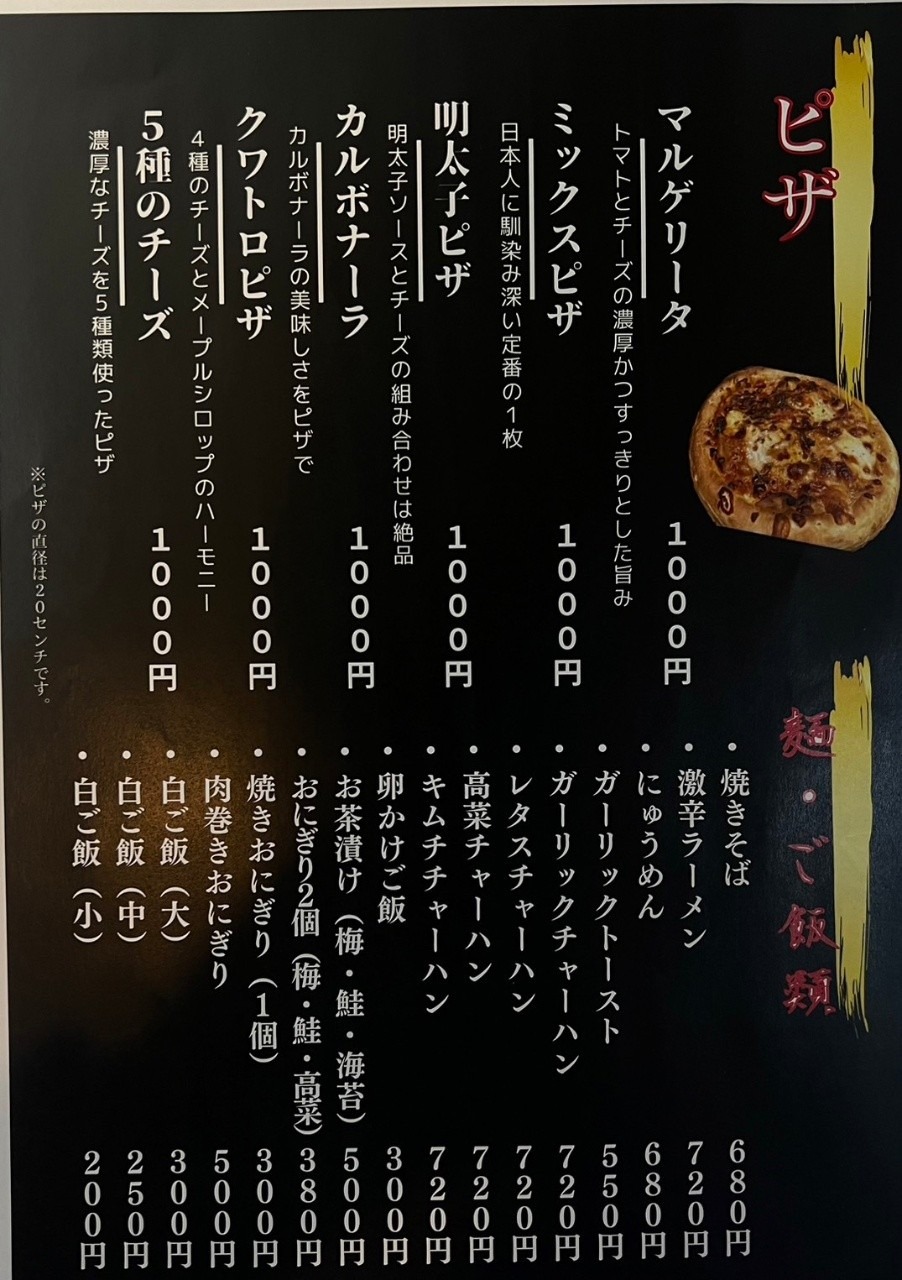 ピザ
マルゲリータ
1000円
トマトとチーズの濃厚かつすっきりとした旨み
ミックスピザ
1000円
日本人に馴染み深い定番の1枚
明太子ピザ
1000円
明太子ソースとチーズの組み合わせは絶品
カルボナーラ
1000円
カルボナーラの美味しさをピザで
クワトロピザ
1000円
4種のチーズとメープルシロップのハーモニー
5種のチーズ
1000円
濃厚なチーズを5種類使ったピザ
※ピザの直径は20センチです。
麺・ご飯類
・焼きそば 680円
・激辛ラーメン 720円
・にゅうめん 680円
・ガーリックトースト 550円
・ガーリックチャーハン 720円
・レタスチャーハン 720円
・高菜チャーハン 720円
・キムチチャーハン 720円
・卵かけご飯 300円
・お茶漬け（梅・鮭・海苔） 500円
・おにぎり2個（梅・鮭・高菜） 380円
・焼きおにぎり（1個） 300円
・肉巻きおにぎり 500円
・白ご飯（大） 300円
・白ご飯（中） 250円
・白ご飯（小） 200円